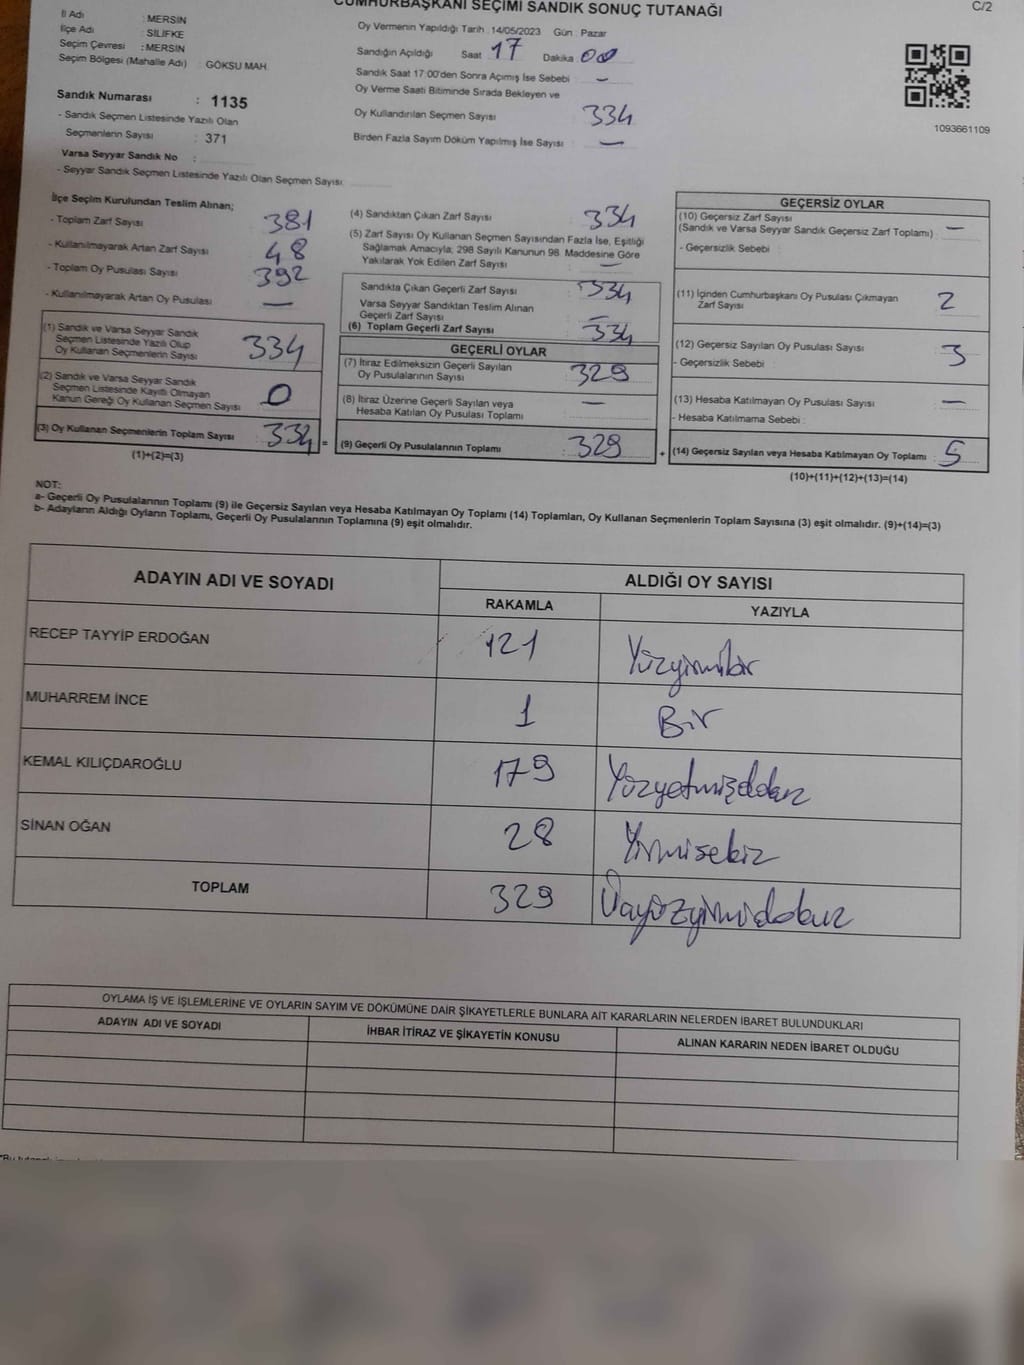 CUMHURBAŞKANI SEÇİMİ SANDIK SONUÇ TUTANAĞI
C/2
İl Adı : MERSİN
İlçe Adı : SİLİFKE
Seçim Çevresi : MERSİN
Seçim Bölgesi (Mahalle Adı) : GÖKSU MAH.
Oy Vermenin Yapıldığı Tarih : 14/05/2023 Gün : Pazar
Sandığın Açıldığı Saat 17 Dakika 00
Sandık Saat 17:00'den Sonra Açımış İse Sebebi : —
Oy Verme Saati Bitiminde Sırada Bekleyen ve
Oy Kullandırılan Seçmen Sayısı : 334
Birden Fazla Sayım Döküm Yapılmış İse Sayısı : —
1093661109
Sandık Numarası : 1135
- Sandık Seçmen Listesinde Yazılı Olan
Seçmenlerin Sayısı : 371
Varsa Seyyar Sandık No :
- Seyyar Sandık Seçmen Listesinde Yazılı Olan Seçmen Sayısı:
İlçe Seçim Kurulundan Teslim Alınan;
- Toplam Zarf Sayısı : 381
- Kullanılmayarak Artan Zarf Sayısı : 48
- Toplam Oy Pusulası Sayısı : 392
- Kullanılmayarak Artan Oy Pusulası : —
(1) Sandık ve Varsa Seyyar Sandık
Seçmen Listesinde Yazılı Olup
Oy Kullanan Seçmenlerin Sayısı : 334
(2) Sandık ve Varsa Seyyar Sandık
Seçmen Listesinde Kayıtlı Olmayan
Kanun Gereği Oy Kullanan Seçmen Sayısı : 0
(3) Oy Kullanan Seçmenlerin Toplam Sayısı : 334 =
(1)+(2)=(3)
(4) Sandıktan Çıkan Zarf Sayısı : 334
(5) Zarf Sayısı Oy Kullanan Seçmen Sayısından Fazla İse, Eşitliği
Sağlamak Amacıyla; 298 Sayılı Kanunun 98. Maddesine Göre
Yakılarak Yok Edilen Zarf Sayısı : —
Sandıkta Çıkan Geçerli Zarf Sayısı : 334
Varsa Seyyar Sandıktan Teslim Alınan
Geçerli Zarf Sayısı : —
(6) Toplam Geçerli Zarf Sayısı : 334
GEÇERLİ OYLAR
(7) İtiraz Edilmeksizin Geçerli Sayılan
Oy Pusulalarının Sayısı : 329
(8) İtiraz Üzerine Geçerli Sayılan veya
Hesaba Katılan Oy Pusulası Toplamı : —
(9) Geçerli Oy Pusulalarının Toplamı : 329 +
GEÇERSİZ OYLAR
(10) Geçersiz Zarf Sayısı
(Sandık ve Varsa Seyyar Sandık Geçersiz Zarf Toplamı) : —
- Geçersizlik Sebebi :
(11) İçinden Cumhurbaşkanı Oy Pusulası Çıkmayan
Zarf Sayısı : 2
(12) Geçersiz Sayılan Oy Pusulası Sayısı : 3
- Geçersizlik Sebebi :
(13) Hesaba Katılmayan Oy Pusulası Sayısı : —
- Hesaba Katılmama Sebebi :
(14) Geçersiz Sayılan veya Hesaba Katılmayan Oy Toplamı : 5
(10)+(11)+(12)+(13)=(14)
NOT:
a- Geçerli Oy Pusulalarının Toplamı (9) ile Geçersiz Sayılan veya Hesaba Katılmayan Oy Toplamı (14) Toplamları, Oy Kullanan Seçmenlerin Toplam Sayısına (3) eşit olmalıdır. (9)+(14)=(3)
b- Adayların Aldığı Oyların Toplamı, Geçerli Oy Pusulalarının Toplamına (9) eşit olmalıdır.
ADAYIN ADI VE SOYADI
ALDIĞI OY SAYISI
RAKAMLA YAZIYLA
RECEP TAYYİP ERDOĞAN 121 Yüzyirmibir
MUHARREM İNCE 1 Bir
KEMAL KILIÇDAROĞLU 179 Yüzyetmişdokuz
SİNAN OĞAN 28 Yirmisekiz
TOPLAM 329 Üçyüzyirmidokuz
OYLAMA İŞ VE İŞLEMLERİNE VE OYLARIN SAYIM VE DÖKÜMÜNE DAİR ŞİKAYETLERLE BUNLARA AİT KARARLARIN NELERDEN İBARET BULUNDUKLARI
ADAYIN ADI VE SOYADI
İHBAR İTİRAZ VE ŞİKAYETİN KONUSU
ALINAN KARARIN NEDEN İBARET OLDUĞU